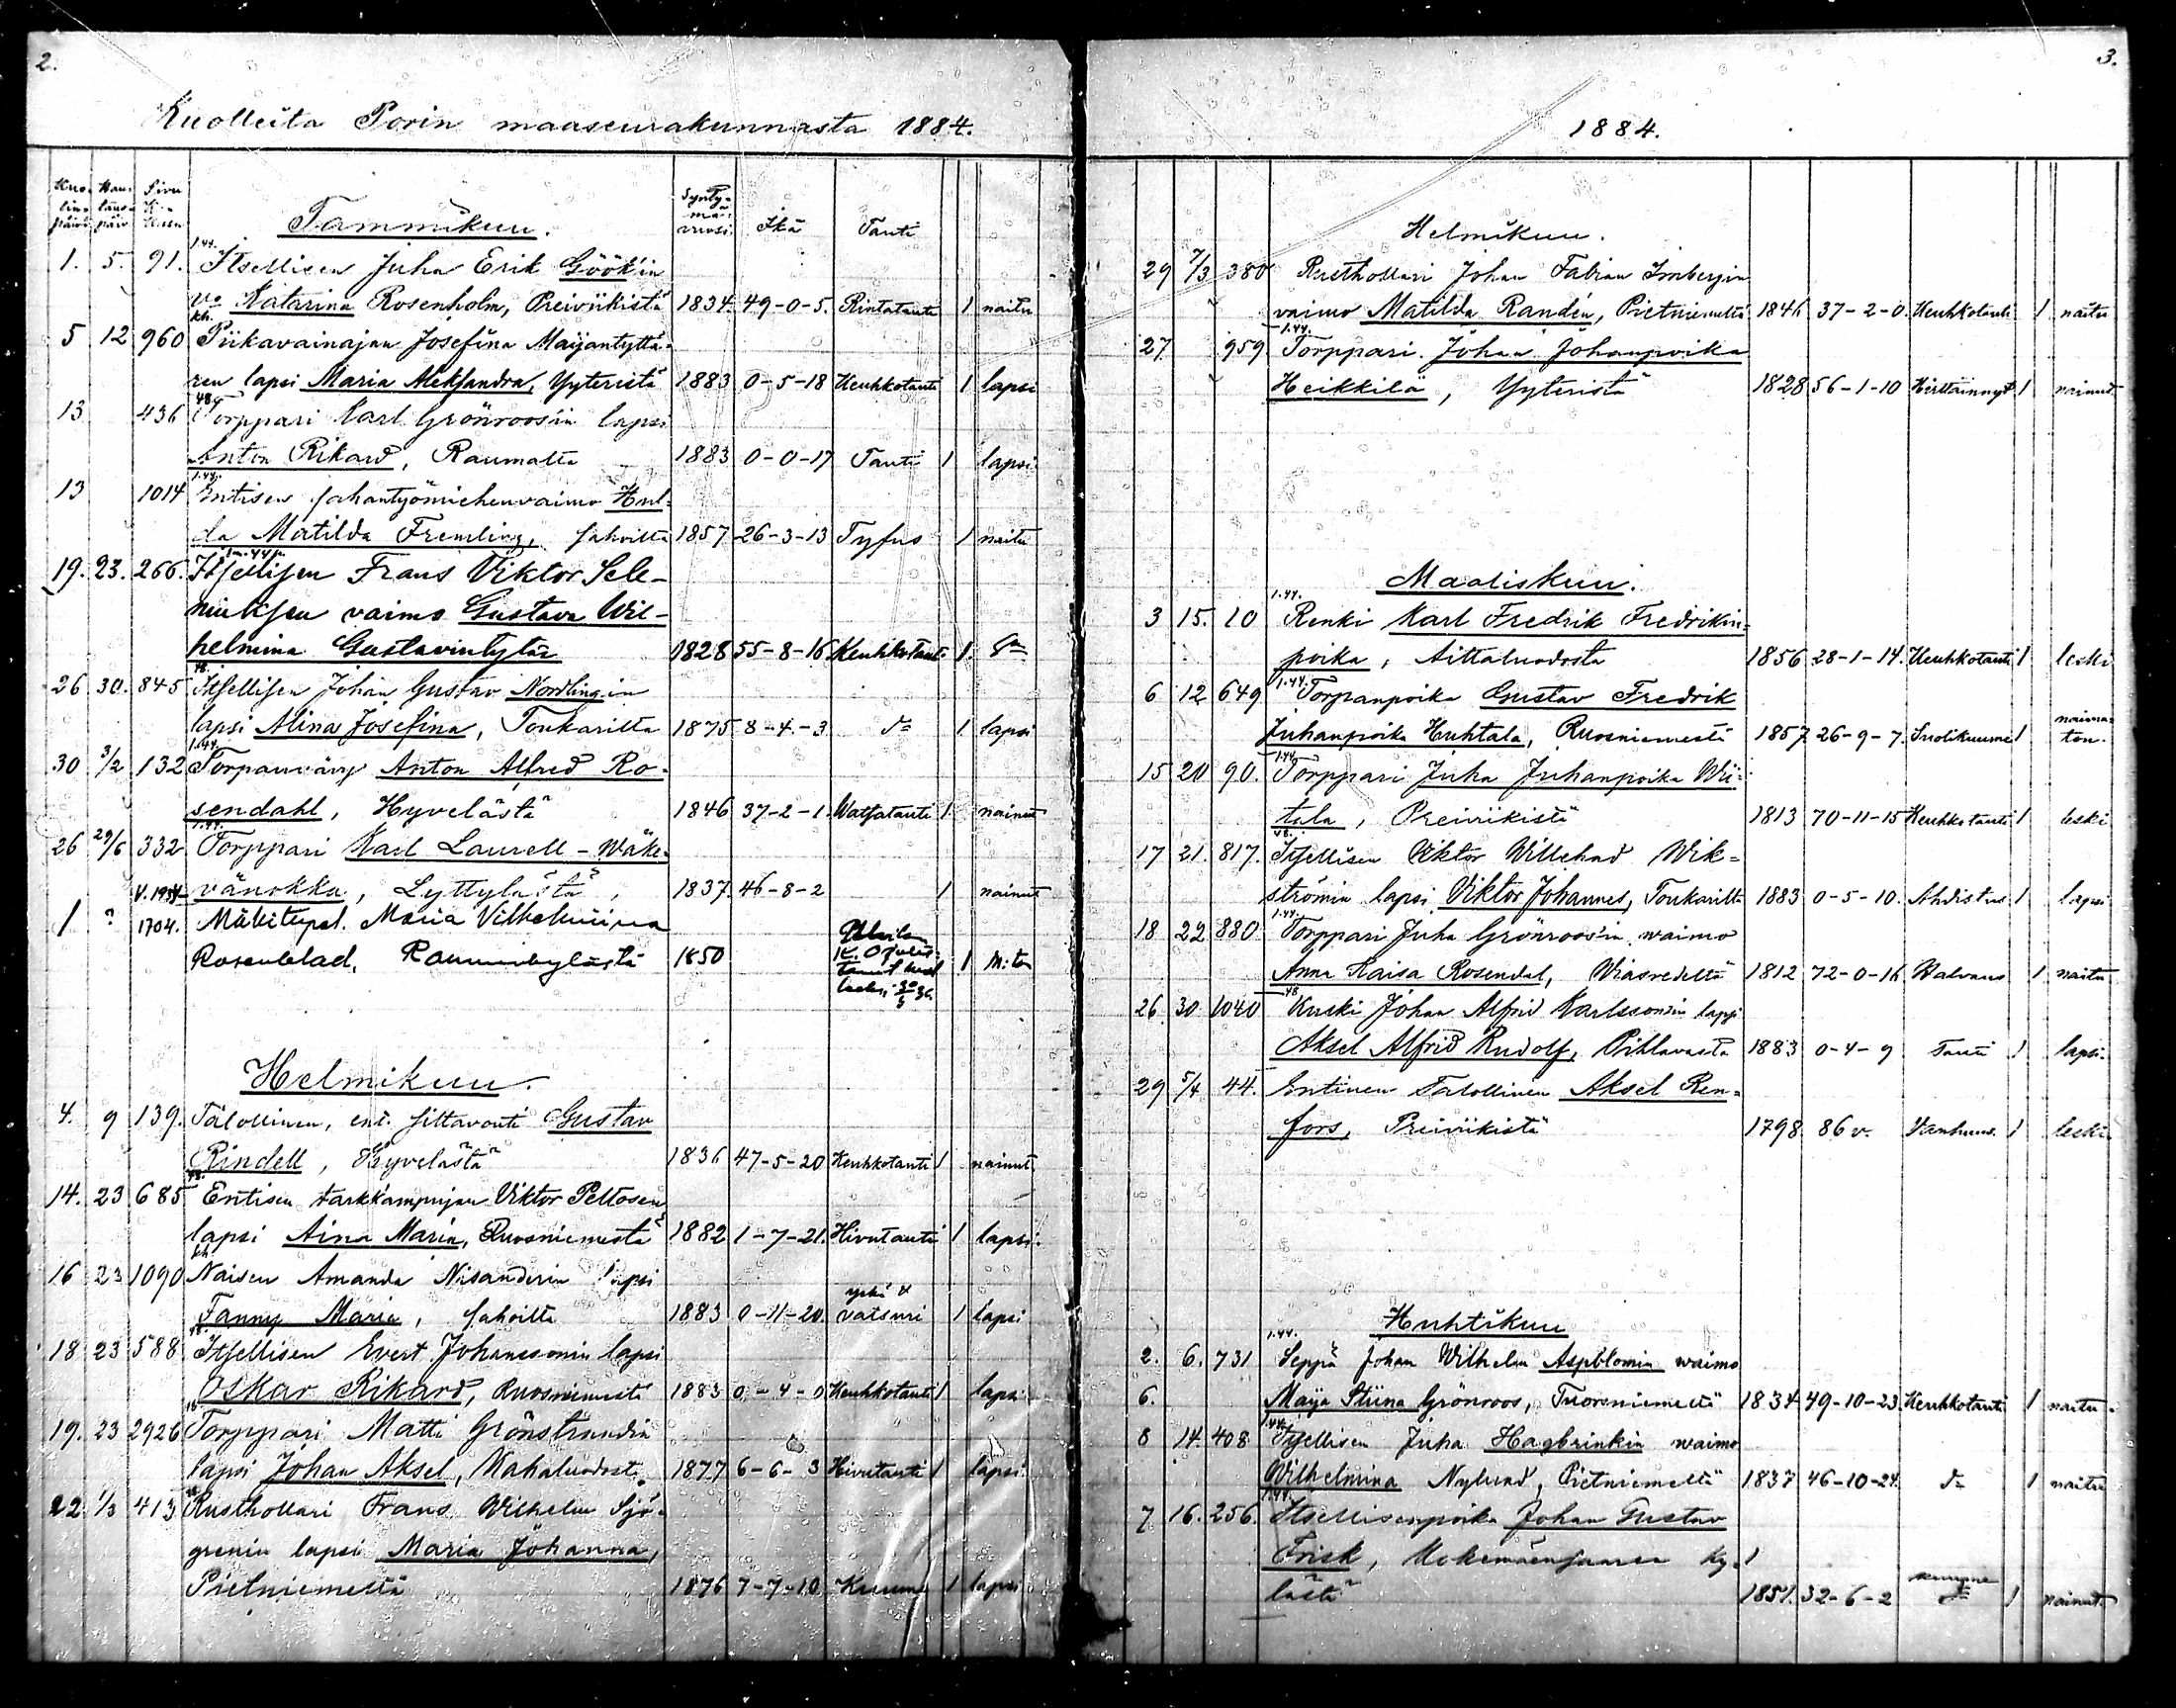 2.
Kuolleita Porin maaseurakunnasta 1884.
Kuo- Hau- Sivu
lin- taus- K.-
päivä päiv. kirn
Synty-
mä-
vuosi. Ikä Tauti
Tammikuu.
1. 5. 91. 1.44. Itsellisen Juha Erik Göök'in
vo Katarina Rosenholm, Preiviikistä 1834. 49-0-5. Rintatauti 1 naitu
5 12 960 kh. Piikavainajan Josefina Maijantyttä-
ren lapsi Maria Aleksandra, Yyteristä 1883 0-5-18 Keuhkotauti 1 lapsi
13 436 48. Torppari Karl Grönroos'in lapsi
Anton Rikard, Raumalta 1883 0-0-17 Tauti 1 lapsi.
13 1014 1.44. Entisen sahantyömiehenvaimo Hul-
da Matilda Fremling, Sahoilta 1857 26-3-13 Tyfus 1 naitu
19. 23. 266. Itsellisen Frans Viktor Sele-
niuksen vaimo Gustava Wil-
helmina Gustavintytär 1828 55-8-16 Keuhkotaut. 1.
26 30. 845 48. Itsellisen Johan Gustav Nordlingin
lapsi Alina Josefina, Toukarilta 1875 8-4-3 do 1 lapsi
30 3/2 132 1.44. Torpanvävy Anton Alfred Ro-
sendahl, Hyvelästä 1846 37-2-1. Watsatauti 1 nainut
26 29/6 332 1.44. Torppari Karl Laurell-Wäke-
vänokka, Lyttylästä, 1837. 46-8-2 1 nainut
1 ? 1704. Mäkitupal. Maria Vilhelmiina
Rosenblad, Raumukylästä 1850 1 N:tön
Helmikuu.
4. 9 139. Talollinen, ent. siltavouti Gustav
Rindell, Hyvelästä 1836 47-5-20 Keuhkotauti 1 nainut
14. 23 685 48. Entisen tarkk'ampujan Viktor Peltosen
lapsi Aina Maria, Ruosniemestä 1882 1-7-21. Hivutauti 1 lapsi.
16 23 1090 kh. Naisen Amanda Nisanderin lapsi
Fanny Maria, Sahoilta 1883 0-11-20. yskä & vatsuri 1 lapsi
18 23 588 48. Itsellisen Evert Johanssonin lapsi
Oskar Rikard, Ruosniemestä 1883 0-4-0 Keuhkotauti 1 lapsi
19. 23 2926 48 Torppari Matti Grönstrandin
lapsi Johan Aksel, Kahaluodosta 1877 6-6-3 Hivutauti 1 lapsi
22 1/3 413 Rusthollari Frans Wilhelm Sjö-
grenin lapsi Maria Johanna,
Pietniemeltä 1876 7-7-10 Kuume 1 lapsi
3.
1884.
Helmikuu.
29 7/3 380 Rusthollari Johan Fabian Imbergin
vaimo Matilda Randén, Pietniemeltä 1846 37-2-0. Keuhkotauti 1 naitu
27 959 1.44. Torppari Johan Johanpoika
Heikkilä, Yyteristä 1828 56-1-10 Hirttäinnyt 1 nainut
Maaliskuu.
3 15. 10 1.44. Renki Karl Fredrik Fredrikin-
poika, Aittaluodosta 1856 28-1-14. Keuhkotauti 1 leski
6 12 649 1.44. Torpanpoika Gustav Fredrik
Juhanpoika Huhtala, Ruosniemestä 1857 26-9-7. Suolikuume 1 naima-
ton.
15 20 90. 1.44 Torppari Juha Juhanpoika Wii-
tala, Preiviikistä 1813 70-11-15 Keuhkotauti 1 leski
17 21. 817. 48. Itsellisen Viktor Willehad Wik-
strömin lapsi Viktor Johannes, Toukarilta 1883 0-5-10. Ahdistus 1 lapsi
18 22 880 1.44. Torppari Juha Grönroos'in waimo
Anna Kaisa Rosendal, Wiasvedeltä 1812 72-0-16 Halvaus 1 naitu
26. 30 1040 48 Kuski Johan Alfrid Karlssonin lapsi
Aksel Alfrid Rudolf, Pihlavasta 1883 0-4-9 Tauti 1 lapsi.
29 5/4 44. Entinen Talollinen Aksel Ren-
fors, Preiviikistä 1798 86 v. Vanhuus. 1 leski
Huhtikuu
2. 6. 731 1.44. Seppä Johan Wilhelm Aspblomin waimo
6. Maija Stiina Grönroos, Tuorsniemeltä 1834 49-10-23. Keuhkotauti 1 naitu.
8 14. 408 1.44. Itsellisen Juha Hagbrinkin waimo
Wilhelmina Nylund, Pietniemeltä 1837 46-10-24. do 1 naitu
7 16. 256. 1.44. Itsellisenpoika Johan Gustav
Frisk, Kokemäensaaren ky-
lästä 1851. 32-6-2 1 nainut.